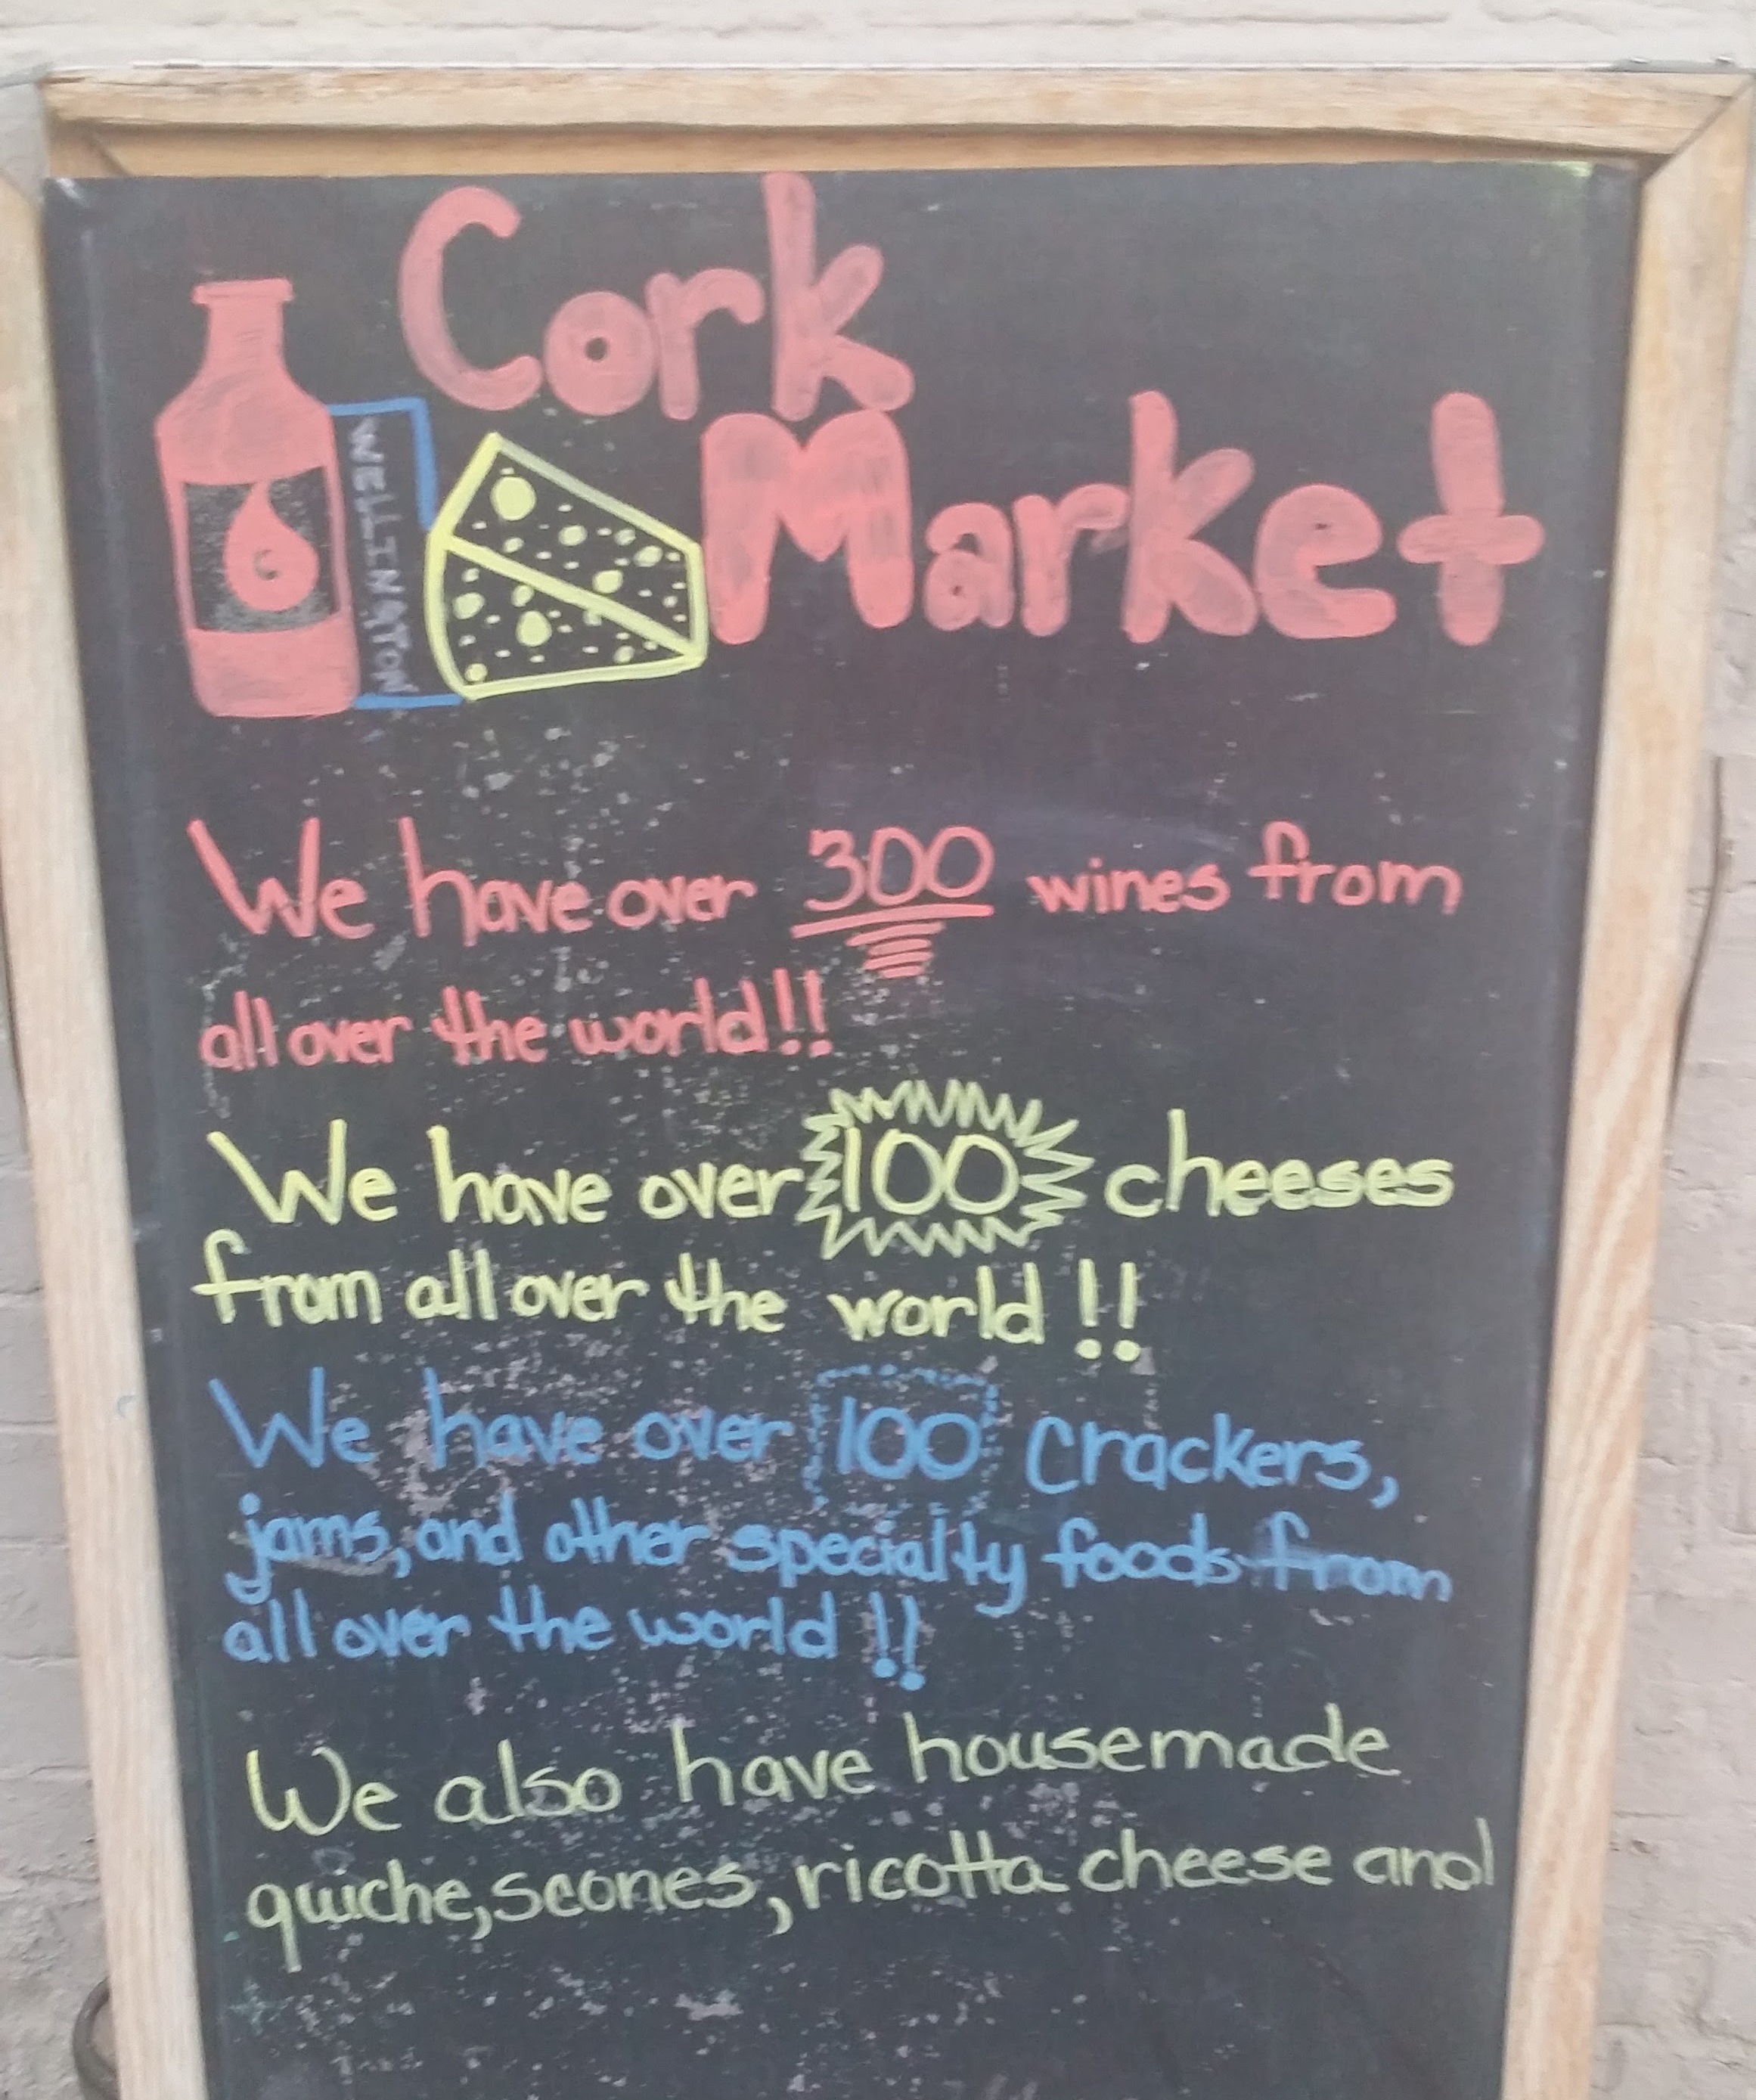 Cork
Market
WELLINGTON
We have over 300 wines from
all over the world!!
We have over 100 cheeses
from all over the world!!
We have over 100 Crackers,
jams, and other specialty foods from
all over the world!!
We also have housemade
quiche, scones, ricotta cheese and